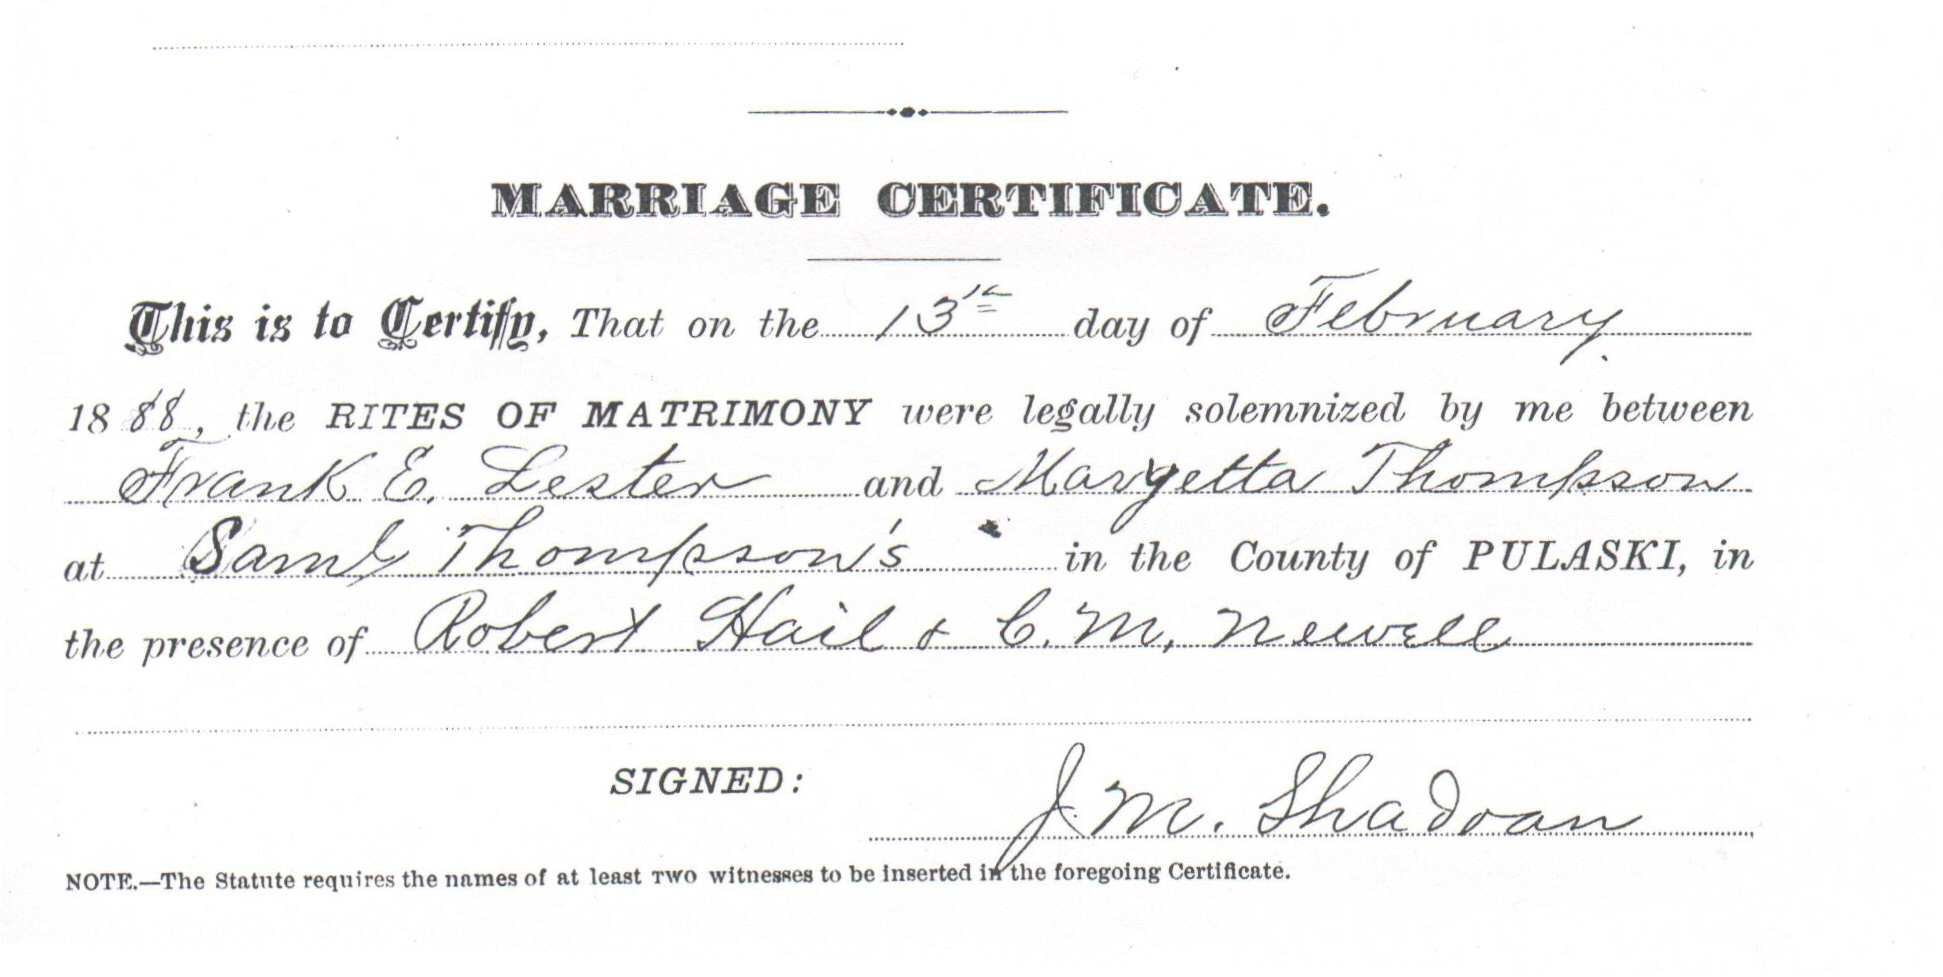 MARRIAGE CERTIFICATE.
This is to Certify, That on the 13th day of February
1888, the RITES OF MATRIMONY were legally solemnized by me between
Frank E. Lester and Margetta Thompson
at Saml Thompson's in the County of PULASKI, in
the presence of Robert Hail & C. M. Newell
SIGNED:
J. M. Shadoan
NOTE.—The Statute requires the names of at least TWO witnesses to be inserted in the foregoing Certificate.